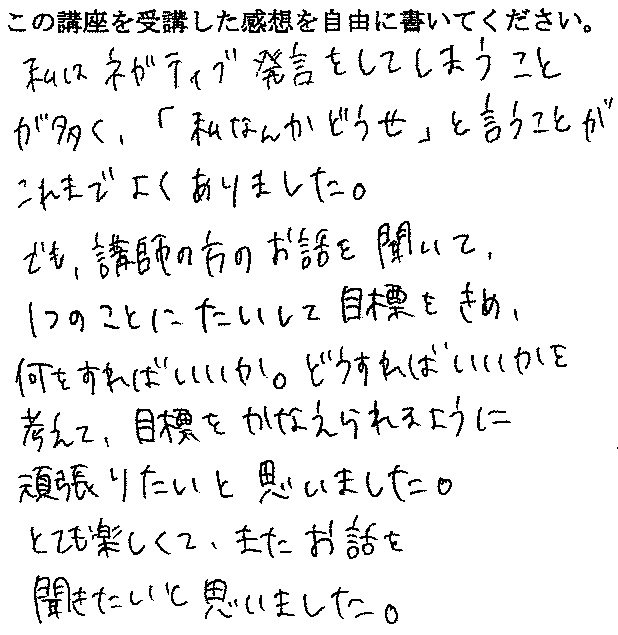 この講座を受講した感想を自由に書いてください。
私はネガティブ発言をしてしまうこと
が多く、「私なんかどうせ」と言うことが
これまでよくありました。
でも、講師の方のお話を聞いて、
1つのことにたいして目標をきめ、
何をすればいいか。どうすればいいかを
考えて、目標をかなえられるように
頑張りたいと思いました。
とても楽しくて、またお話を
聞きたいと思いました。